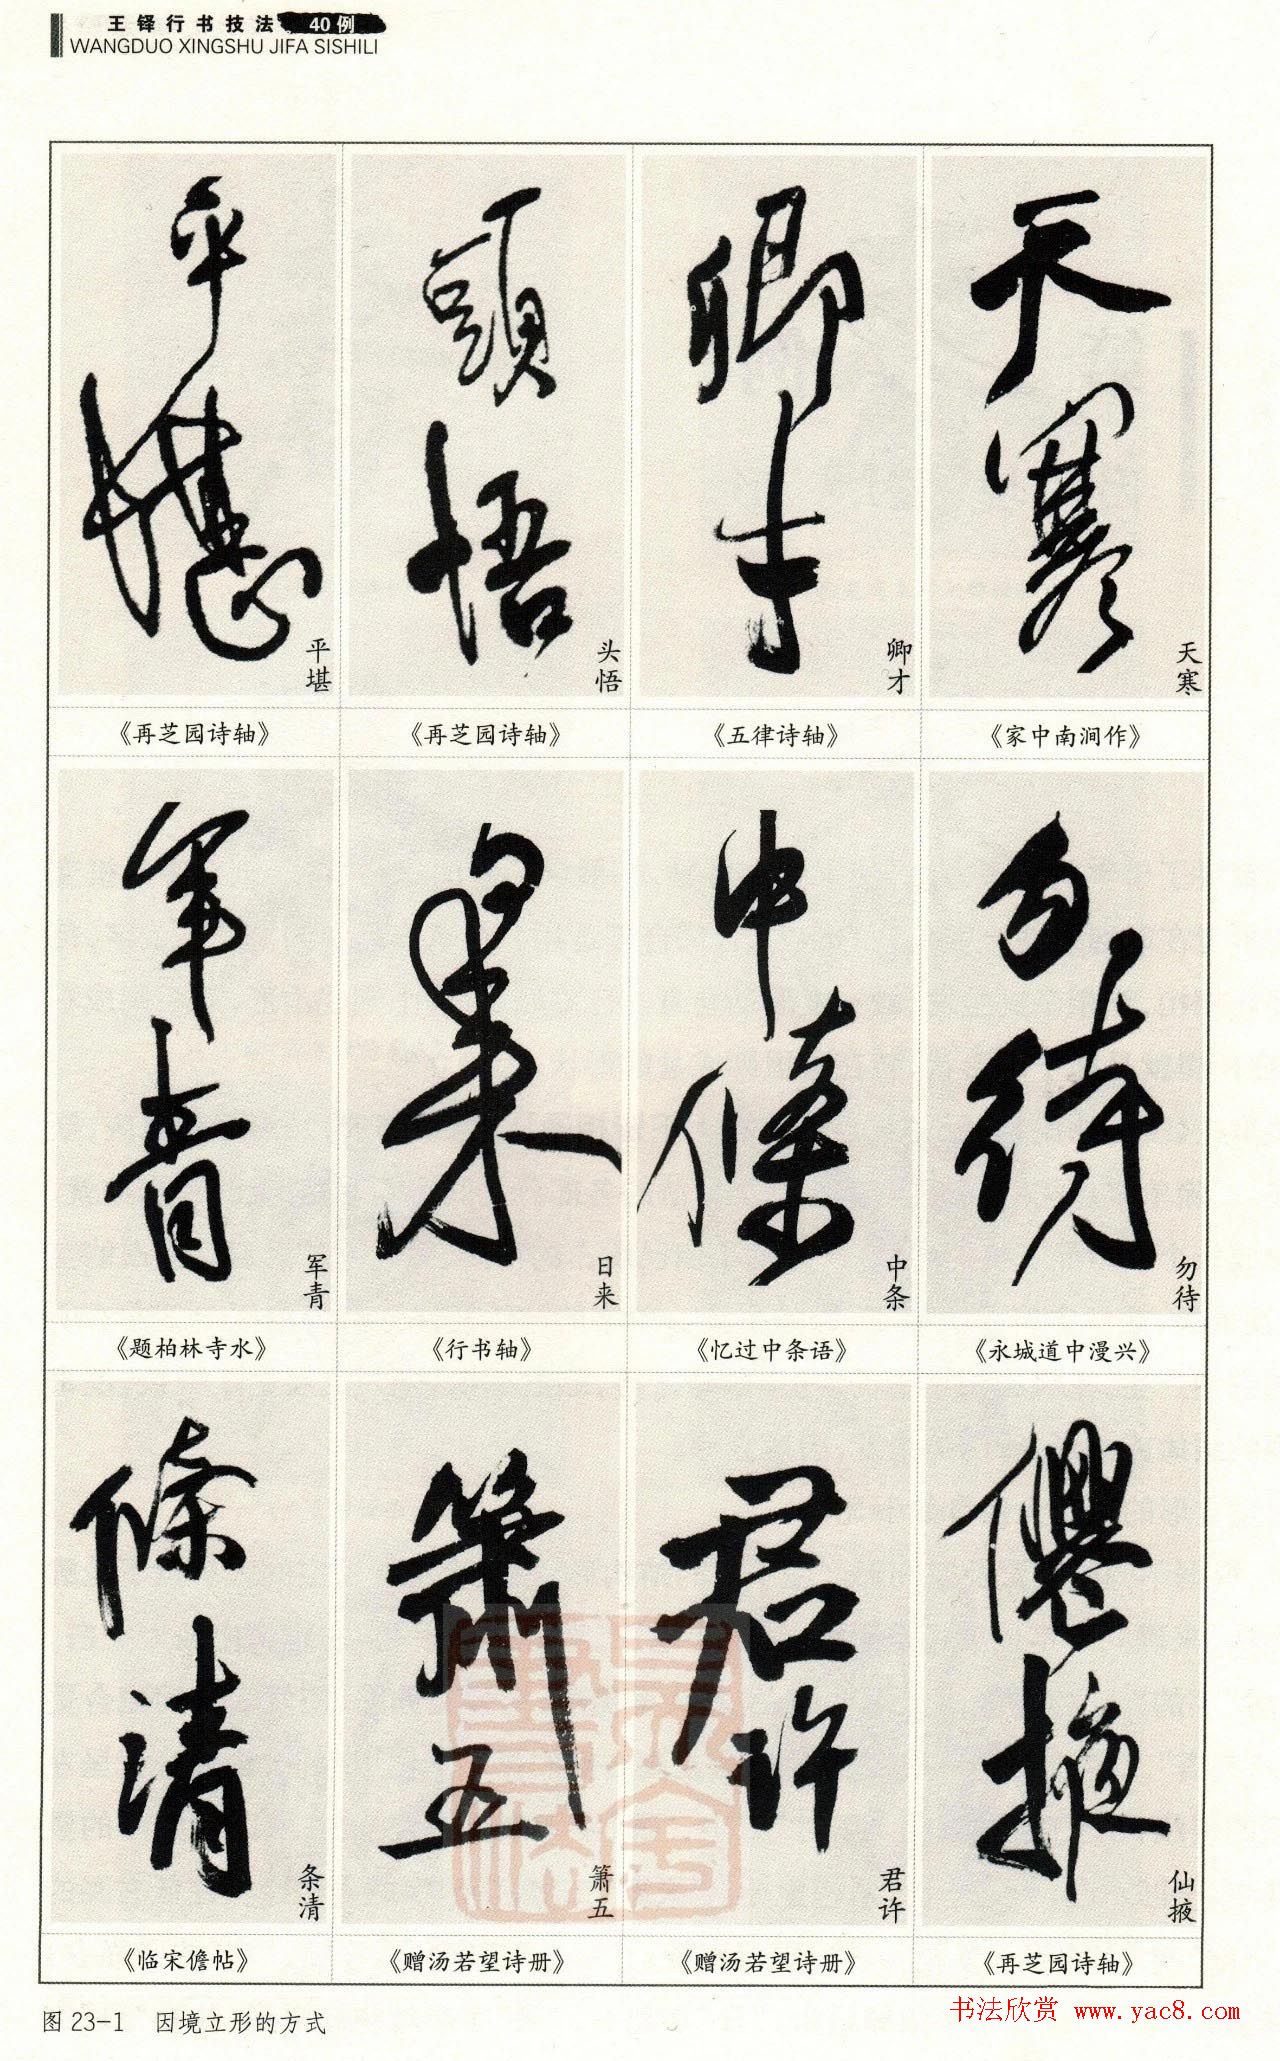 王铎行书技法 40例
WANGDUO XINGSHU JIFA SISHILI
天寒
卿才
头悟
平堪
《再芝园诗轴》
《再芝园诗轴》
《五律诗轴》
《家中南涧作》
勿待
中条
日来
军青
《题柏林寺水》
《行书轴》
《忆过中条语》
《永城道中漫兴》
仙掖
君许
箫五
条清
《临宋儋帖》
《赠汤若望诗册》
《赠汤若望诗册》
《再芝园诗轴》
图 23-1 因境立形的方式
书法欣赏 www.yac8.com